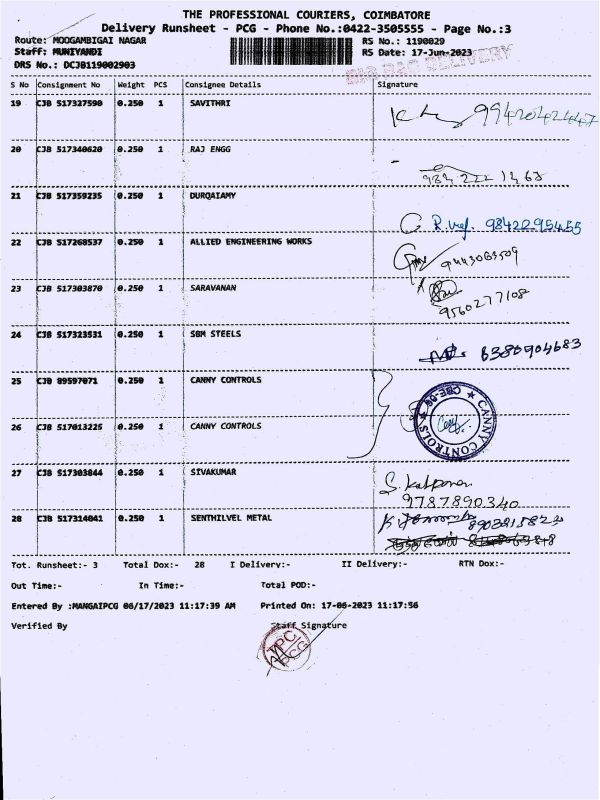 THE PROFESSIONAL COURIERS, COIMBATORE
Delivery Runsheet - PCG - Phone No.:0422-3505555 - Page No.:3
Route: MOOGAMBIGAI NAGAR RS No.: 1190029
Staff: MUNIYANDI RS Date: 17-Jun-2023
DRS No.: DCJB119002903 DELIVERY
S No Consignment No Weight PCS Consignee Details Signature
19 CJB 517327590 0.250 1 SAVITHRI
20 CJB 517340620 0.250 1 RAJ ENGG
984 222 1463
21 CJB 517359235 0.250 1 DURQAIAMY
98422 95455
22 CJB 517268537 0.250 1 ALLIED ENGINEERING WORKS
9443063509
23 CJB 517303870 0.250 1 SARAVANAN
9560277108
24 CJB 517323531 0.250 1 SBM STEELS 6380904683
25 CJB 89597071 0.250 1 CANNY CONTROLS
★ CANNY CONTROLS ★ CBE-06
26 CJB 517013225 0.250 1 CANNY CONTROLS
27 CJB 517303844 0.250 1 SIVAKUMAR
9787890340
28 CJB 517314041 0.250 1 SENTHILVEL METAL
Tot. Runsheet:- 3 Total Dox:- 28 I Delivery:- II Delivery:- RTN Dox:-
Out Time:- In Time:- Total POD:-
Entered By :MANGAIPCG 06/17/2023 11:17:39 AM Printed On: 17-06-2023 11:17:56
Verified By Staff Signature
TPC